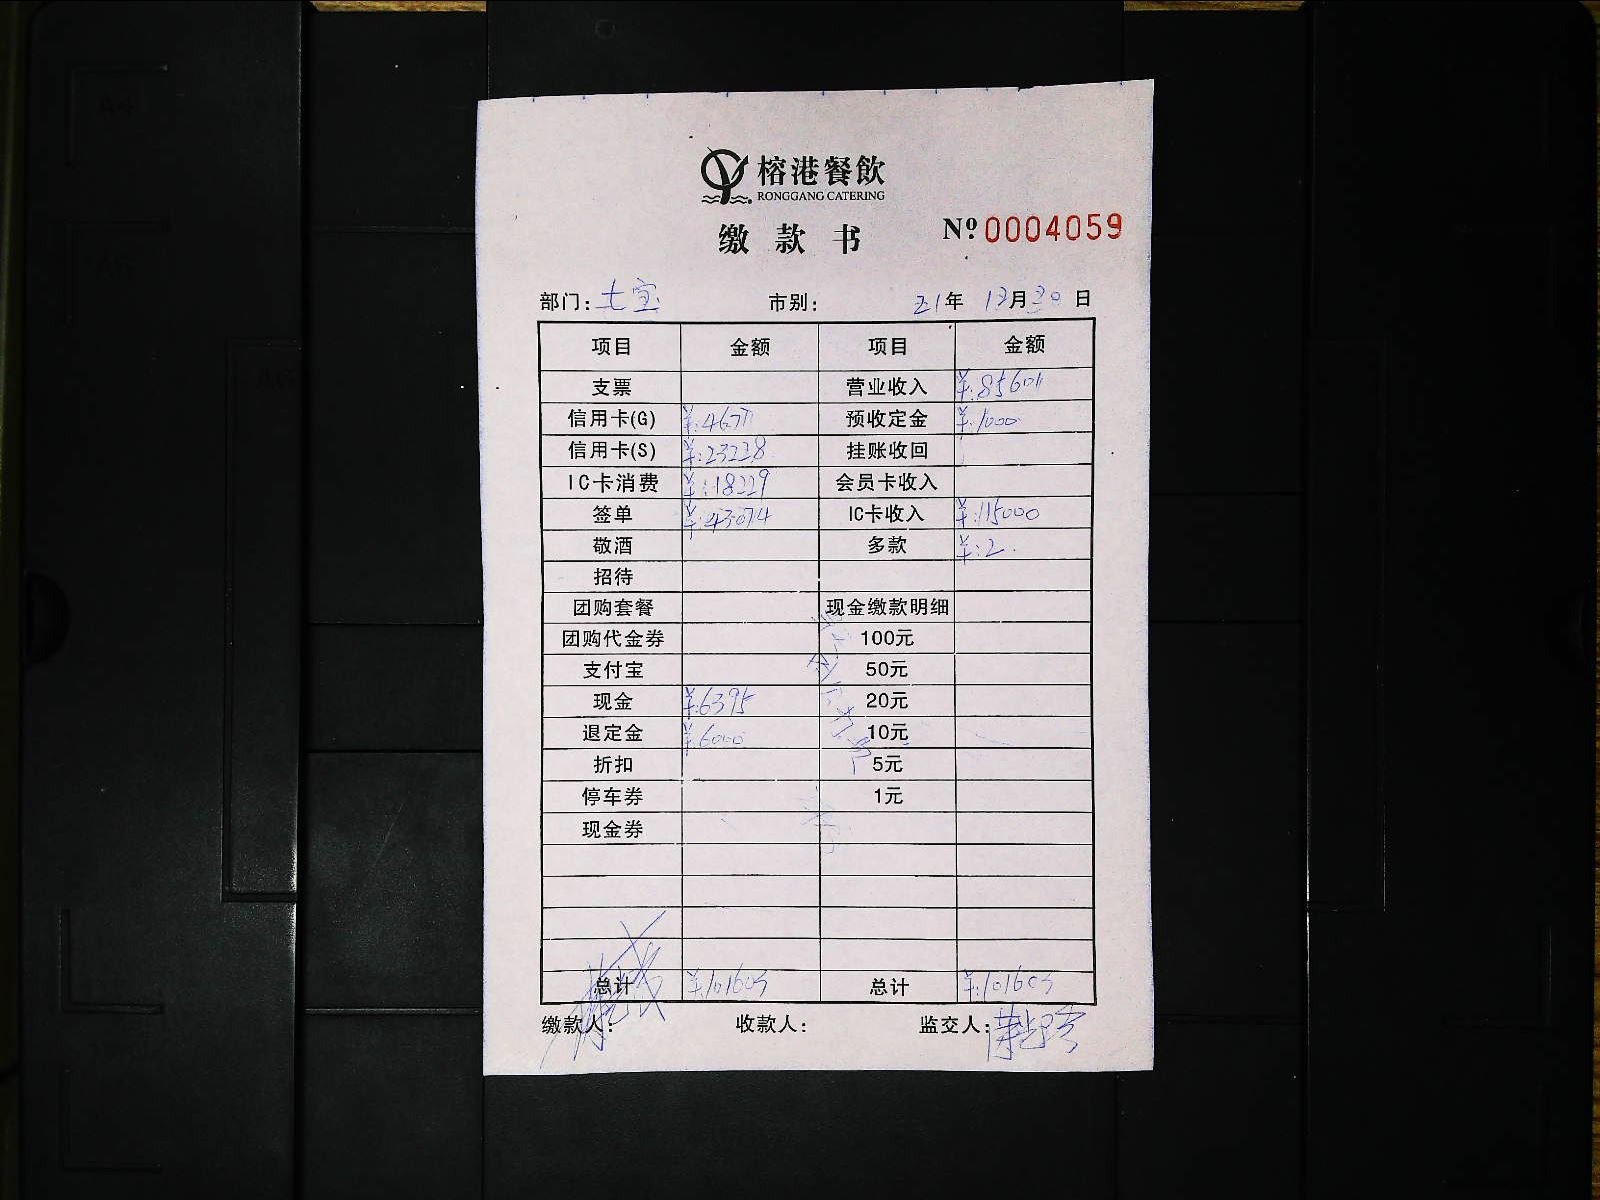 榕港餐飲
RONGGANG CATERING
缴款书 Nº 0004059
部门: 七宝 市别: 21年 12月30日
项目 金额 项目 金额
支票 营业收入 ¥:85601
信用卡(G) ¥:4677 预收定金 ¥:1000
信用卡(S) ¥:23228 挂账收回
IC卡消费 ¥:18229 会员卡收入
签单 ¥:43074 IC卡收入 ¥:15000
敬酒 多款 ¥:2.
招待
团购套餐 现金缴款明细
团购代金券 100元
支付宝 50元
现金 ¥:6395 20元
退定金 ¥:6000 10元
折扣 5元
停车券 1元
现金券
总计 ¥:101603 总计 ¥:101603
缴款人: 收款人: 监交人: